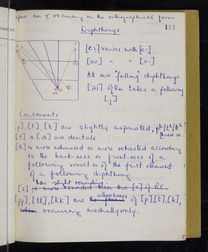 occurring in the orthographical form
110
Diphthongs
[ei] varies with [e:]
[ou] " " [o:]
All are 'falling' diphthongs
often takes a following
[j]
Consonants
[p], [t], [k] are slightly aspirated,
[t] & [d] are dentals
[k] is more advanced or more retracted according
to the back-ness or front-ness of a
following vowel or of the first element
of a following diphthong.
[pp], [tt], [kk] are of [p], [t], [k],
occurring medially only.